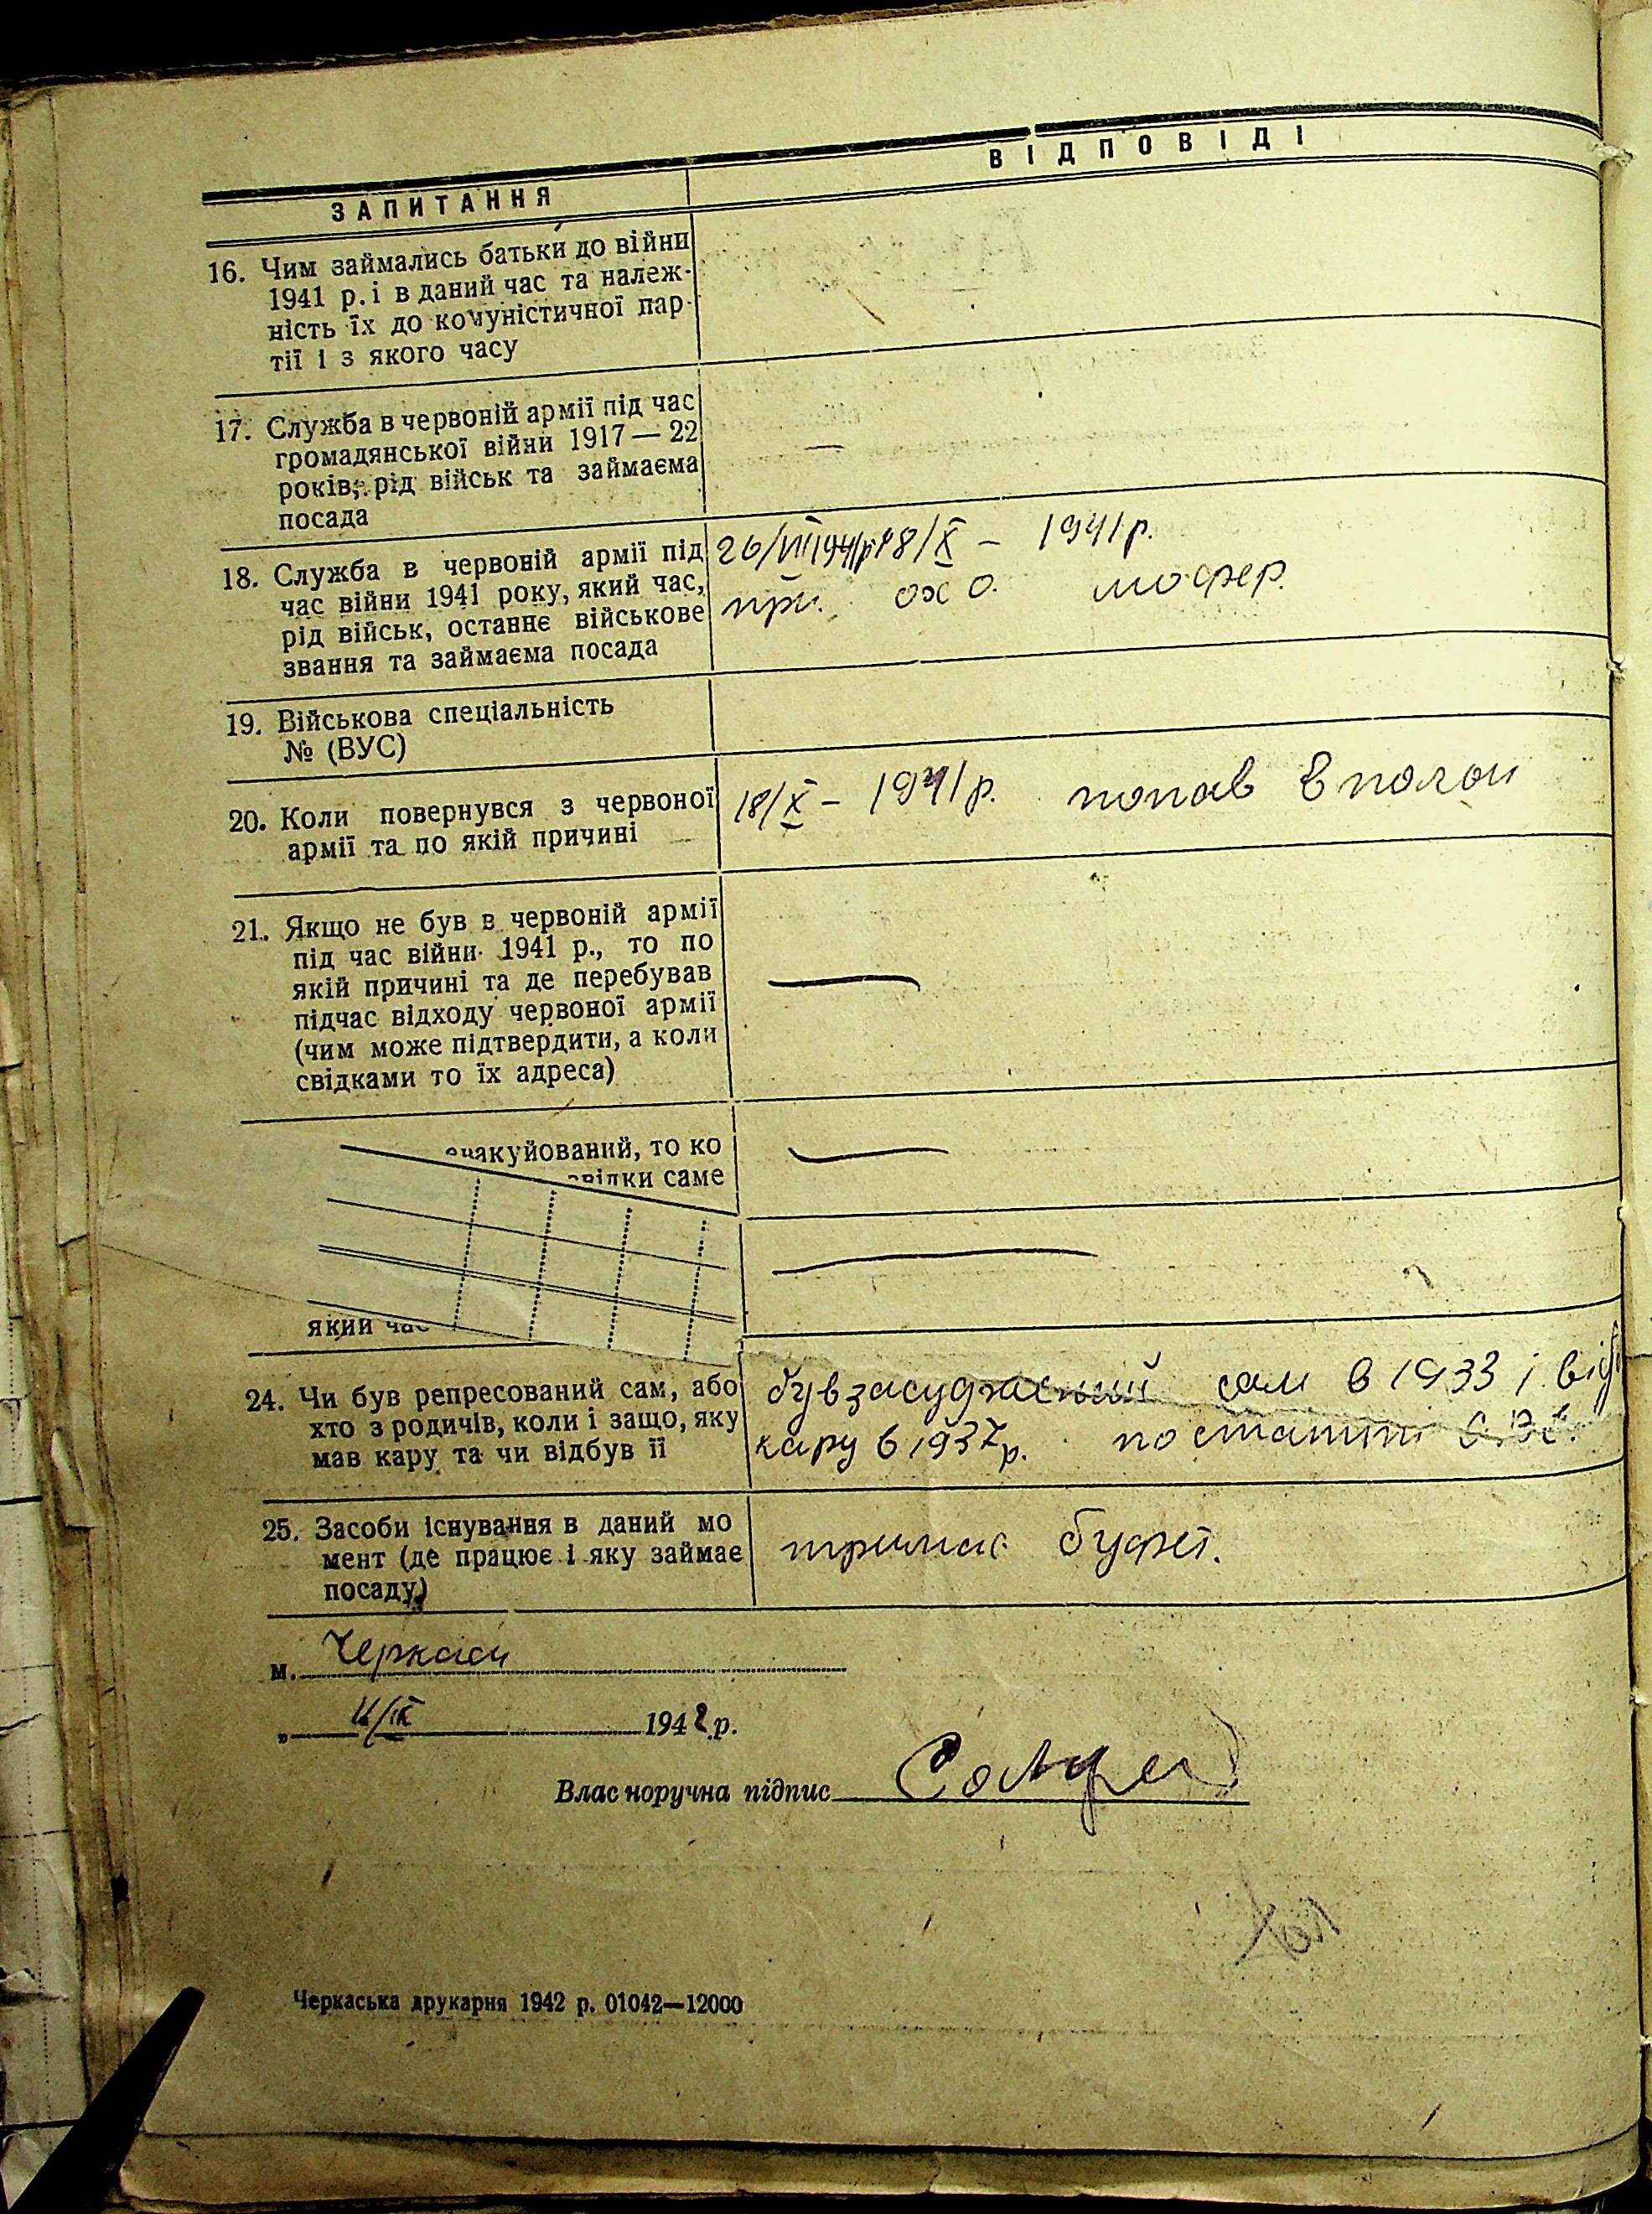 ЗАПИТАННЯ
ВІДПОВІДІ
16. Чим займались батьки до війни
1941 р. і в даний час та належ-
ність їх до комуністичної пар-
тії і з якого часу
17. Служба в червоній армії під час
громадянської війни 1917 — 22
років, рід військ та займаєма
посада
—
18. Служба в червоній армії під
час війни 1941 року, який час,
рід військ, останнє військове
звання та займаєма посада
26/VII 1941р 18/X – 1941 р.
шофер.
19. Військова спеціальність
№ (ВУС)
20. Коли повернувся з червоної
армії та по якій причині
18/X – 1941 р. попав в полон
21. Якщо не був в червоній армії
під час війни 1941 р., то по
якій причині та де перебував
підчас відходу червоної армії
(чим може підтвердити, а коли
свідками то їх адреса)
—
евакуйований, то ко
звідки саме
—
—
який час
24. Чи був репресований сам, або
хто з родичів, коли і защо, яку
мав кару та чи відбув її
був засуджений сам в 1933 і відб
кару в 1937 р. по статті
25. Засоби існування в даний мо
мент (де працює і яку займає
посаду)
тримає буфет.
м. Черкаси
„ 11/IX 1942 р.
Власноручна підпис
Черкаська друкарня 1942 р. 01042—12000